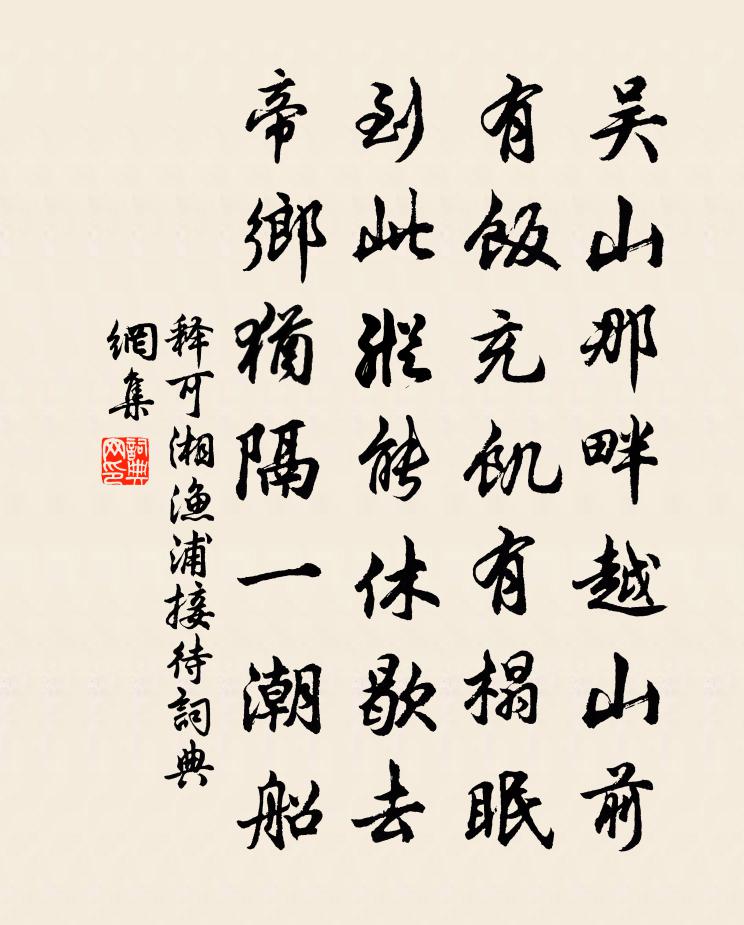 吴山那畔越山前
有饭充饥有榻眠
到此縱能休歇去
帝鄉猶隔一潮船
释可湘漁浦接待詞典
網集
詞典
网印